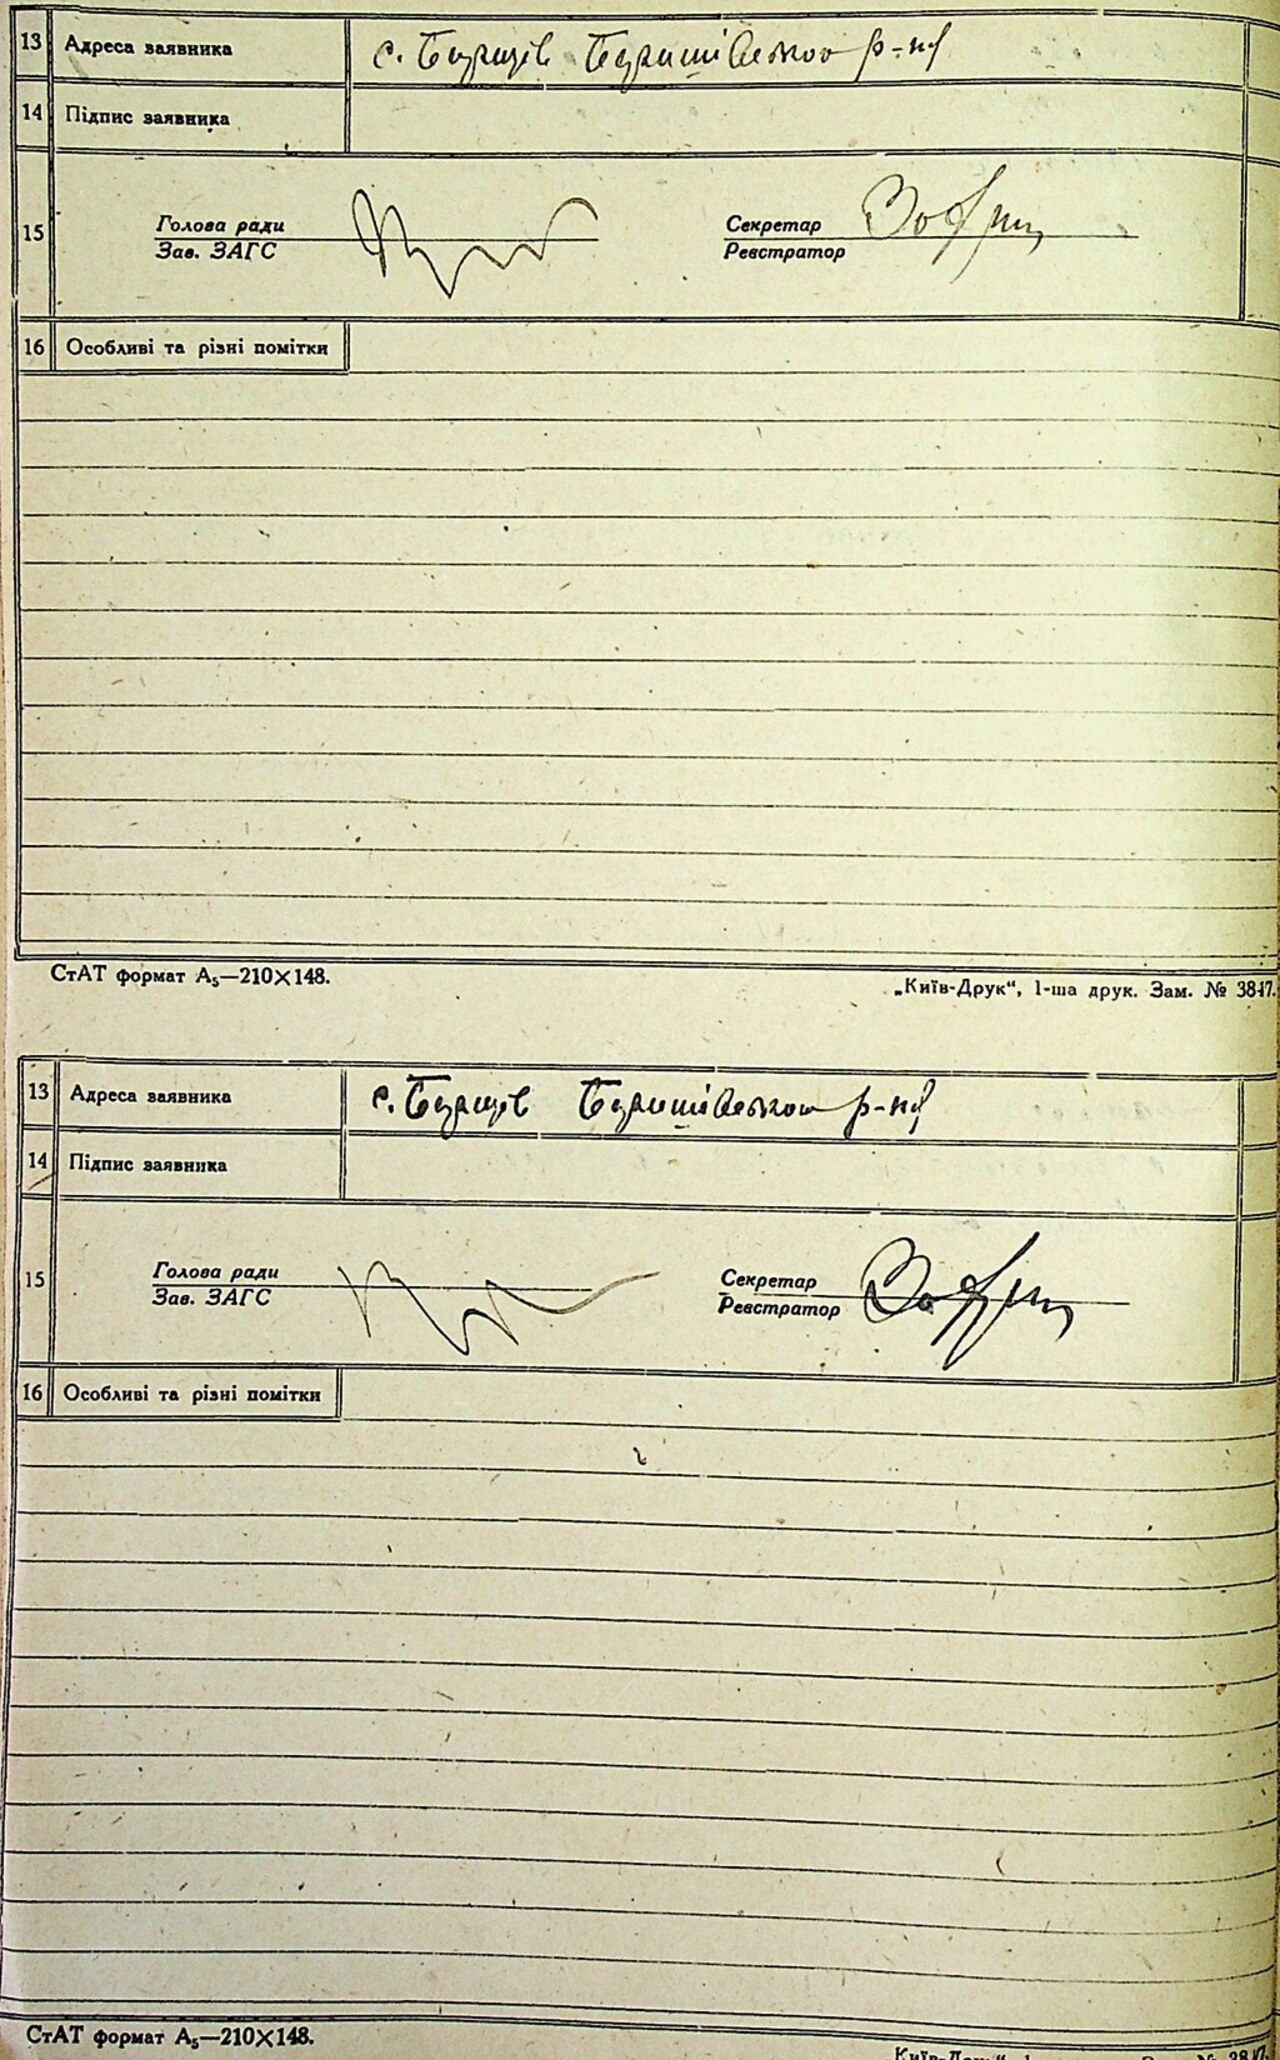 13 Адреса заявника с. Бзів Баришівського р-ну
14 Підпис заявника
15 Голова ради Секретар
Зав. ЗАГС Реєстратор
16 Особливі та різні помітки
СтАТ формат А₅—210×148.
„Київ-Друк“, 1-ша друк. Зам. № 3847.
13 Адреса заявника с. Баришівського р-ну
14 Підпис заявника
15 Голова ради Секретар
Зав. ЗАГС Реєстратор
16 Особливі та різні помітки
СтАТ формат А₅—210×148.